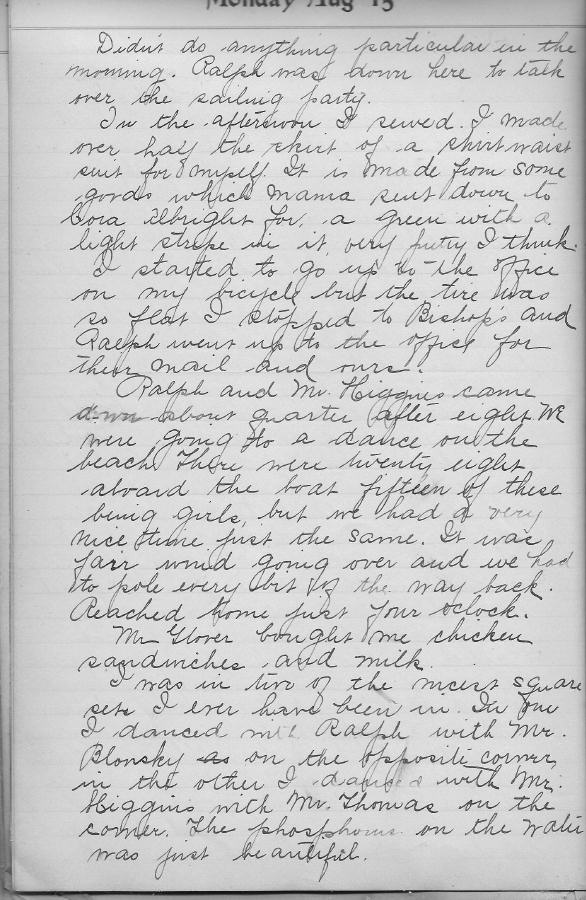 Monday Aug 15
Didn't do anything particular in the
morning. Ralph was down here to talk
over the sailing party.
In the afternoon I sewed. I made
over half the skirt of a shirtwaist
suit for myself. It is made from some
goods which mama sent down to
Cora Albright for, a green with a
light stripe in it, very pretty I think.
I started to go up to the office
on my bicycle but the tire was
so flat I stopped to Bishop's and
Ralph went up to the office for
their mail and ours.
Ralph and Mr. Higgins came
down about quarter after eight. We
were going to a dance on the
beach. There were twenty eight
aboard the boat fifteen of these
being girls, but we had a very
nice time just the same. It was
fair wind going over and we had
to pole every bit of the way back.
Reached home just four o'clock.
Mr Glover bought me chicken
sandwiches and milk.
I was in two of the nicest square
sets I ever have been in. In one
I danced with Ralph with Mr.
Blonsky as on the opposite corner,
in the other I danced with Mr.
Higgins with Mr. Thomas on the
corner. The phosphorus on the water
was just beautiful.